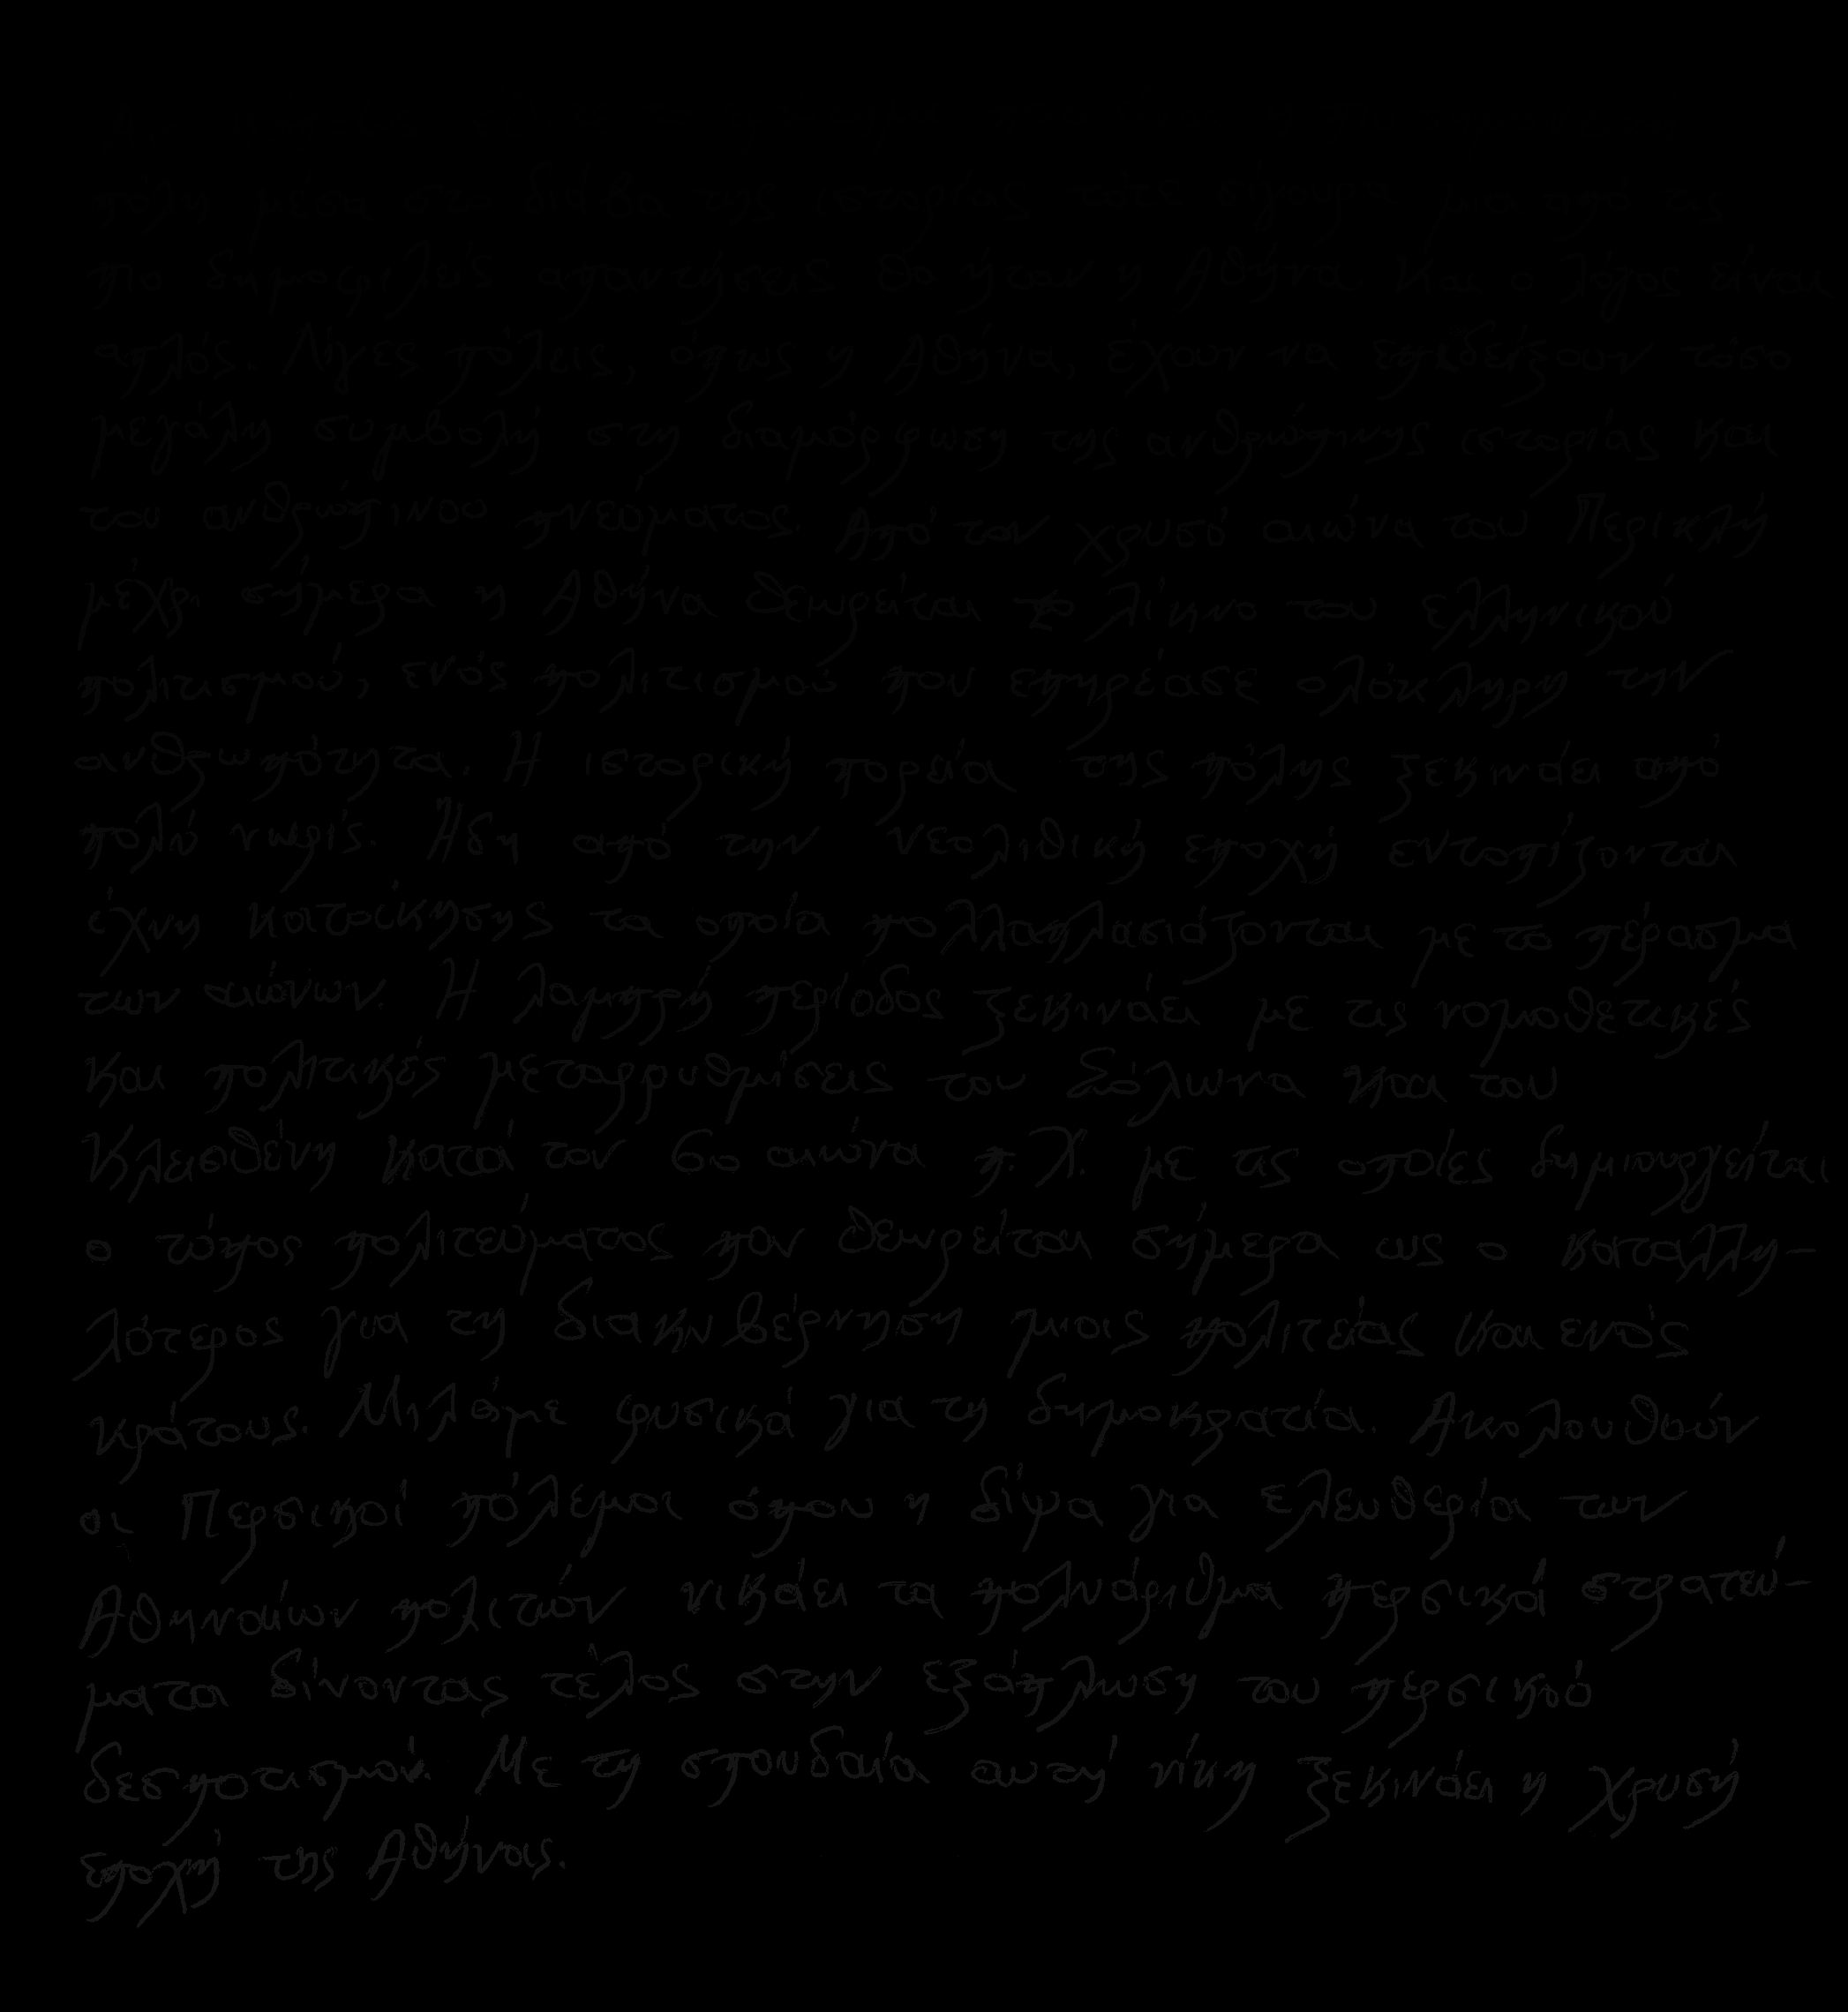 πόλη μέσα στο διάβα της ιστορίας τότε σίγουρα μια από τις
πιο δημοφιλείς απαντήσεις θα ήταν η Αθήνα. Και ο λόγος είναι
απλός. Λίγες πόλεις, όπως η Αθήνα, έχουν να επιδείξουν τόσο
μεγάλη συμβολή στη διαμόρφωση της ανθρώπινης ιστορίας και
του ανθρώπινου πνεύματος. Από τον χρυσό αιώνα του Περικλή
μέχρι σήμερα η Αθήνα θεωρείται το λίκνο του ελληνικού
πολιτισμού, ενός πολιτισμού που επηρέασε ολόκληρη την
ανθρωπότητα. Η ιστορική πορεία της πόλης ξεκινάει από
πολύ νωρίς. Ήδη από την νεολιθική εποχή εντοπίζονται
ίχνη κατοίκησης τα οποία πολλαπλασιάζονται με το πέρασμα
των αιώνων. Η λαμπρή περίοδος ξεκινάει με τις νομοθετικές
και πολιτικές μεταρρυθμίσεις του Σόλωνα και του
Κλεισθένη κατά τον 6ο αιώνα π.Χ. με τις οποίες δημιουργείται
ο τύπος πολιτεύματος που θεωρείται σήμερα ως ο καταλλη-
λότερος για τη διακυβέρνηση μιας πολιτείας και ενός
κράτους. Μιλάμε φυσικά για τη δημοκρατία. Ακολουθούν
οι Περσικοί πόλεμοι όπου η δίψα για ελευθερία των
Αθηναίων πολιτών νικάει τα πολυάριθμα περσικά στρατεύ-
ματα δίνοντας τέλος στην εξάπλωση του περσικού
δεσποτισμού. Με τη σπουδαία αυτή νίκη ξεκινάει η χρυσή
εποχή της Αθήνας.